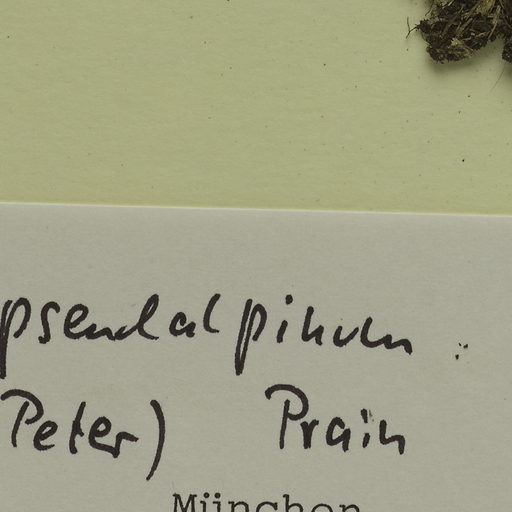 pseudalpinum
Peter) Prain
München